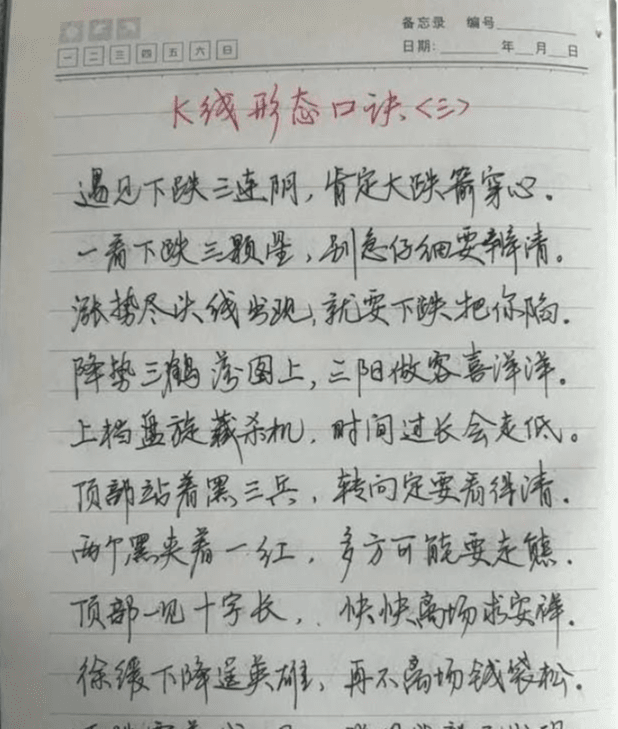 备忘录 编号
一 二 三 四 五 六 日
日期: 年 月 日
K线形态口诀<三>
遇见下跌三连阴，肯定大跌箭穿心。
一看下跌三颗星，别急仔细要辨清。
涨势尽头线出现，就要下跌把你陷.
降势三鹤落图上，三阳做客喜洋洋。
上档盘旋藏杀机，时间过长会走低。
顶部站着黑三兵，转向定要看得清.
两个黑夹着一红，多方可能要走熊.
顶部一见十字长，快快离场求安祥.
徐缓下降逞英雄，再不离场钱袋松.